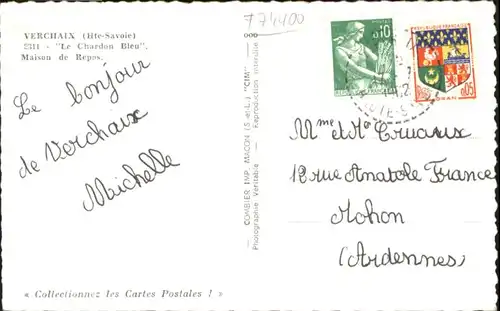 VERCHAIX (Hte-Savoie)
"Le Chardon Bleu"
Maison de Repos.
774400
Le bonjour
de Verchaix
Michelle
« Collectionnez les Cartes Postales ! »
COMBIER IMP. MACON (S.-et-L.) "CIM"
Photographie Véritable - Reproduction interdite
POSTES
0,10
REPUBLIQUE FRANÇAISE
0,05
ORAN
Mme et Mr Cruciaux
12 rue Anatole France
Mohon
(Ardennes)